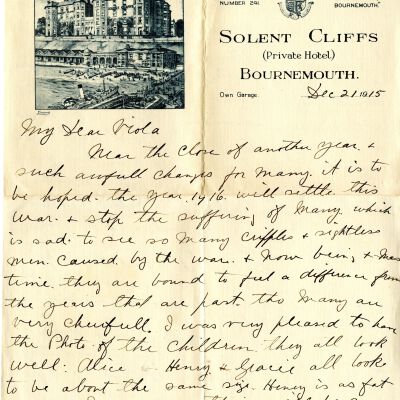 NUMBER 241.
BOURNEMOUTH."
SOLENT CLIFFS
(Private Hotel)
BOURNEMOUTH.
Own Garage.
Dec 21. 1915
My Dear Viola
Near the close of another year. &
such awfull changes for many. it is to
be hoped. the year. 1916. will settle this
war. & stop the suffering of many which
is sad. to see so many cripples & sightless
men. caused by the war. & now being Xmas
time. they are bound to feel a difference from
the years that are past tho many are
very cheerfull. I was very pleased to have
the Photo. of the children they all look
well. Alice & Henry & Gracie all looks
to be about the same size. Henry is as fat